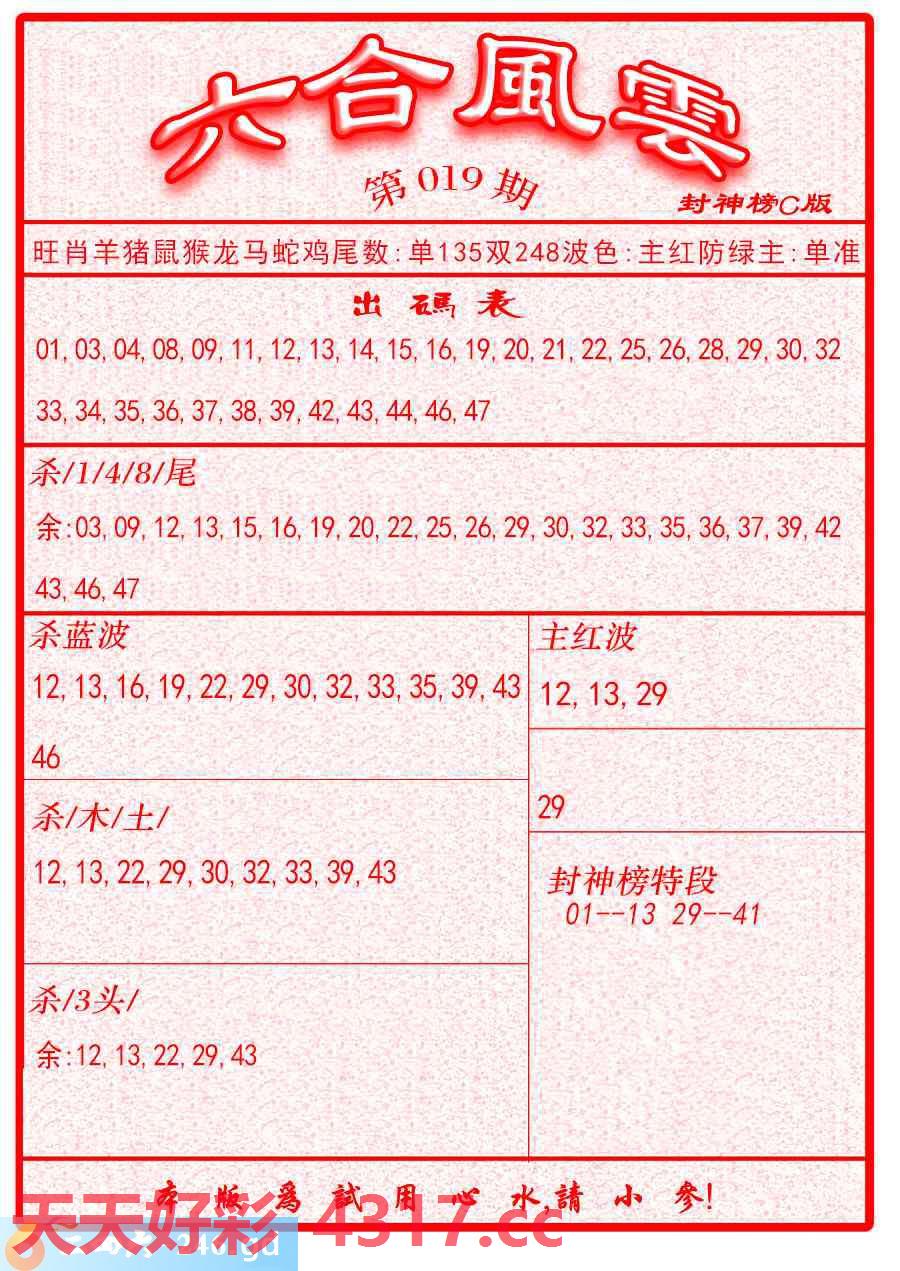 六合風雲
第019期
封神榜C版
旺肖羊猪鼠猴龙马蛇鸡尾数:单135双248波色:主红防绿主:单准
出碼表
01,03,04,08,09,11,12,13,14,15,16,19,20,21,22,25,26,28,29,30,32
33,34,35,36,37,38,39,42,43,44,46,47
杀/1/4/8/尾
余:03,09,12,13,15,16,19,20,22,25,26,29,30,32,33,35,36,37,39,42
43,46,47
杀蓝波
12,13,16,19,22,29,30,32,33,35,39,43
46
主红波
12,13,29
29
杀/木/土/
12,13,22,29,30,32,33,39,43
封神榜特段
01--13 29--41
杀/3头/
余:12,13,22,29,43
本版爲試用心水,請小參!
天天好彩 4317.cc
246.gd